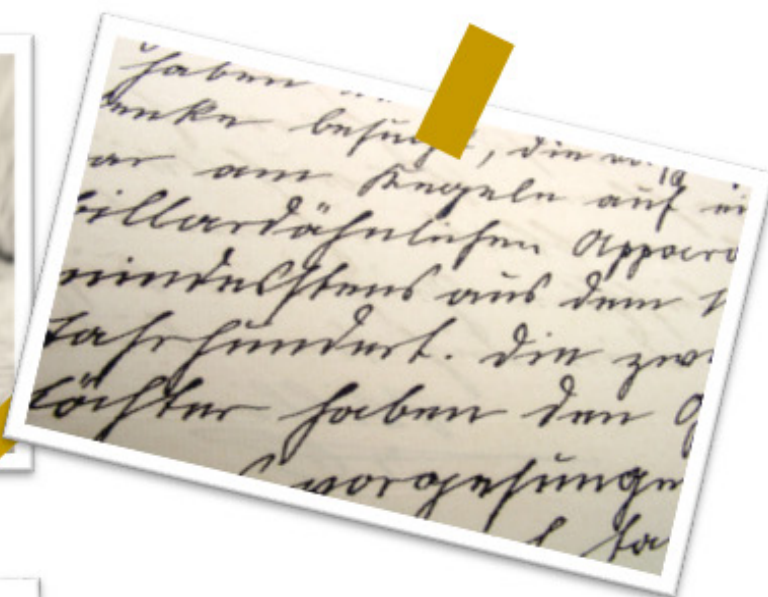 haben
besucht, die
am Kegeln auf
billardähnlichen Appara
mindesstens aus dem
Jahrhundert. die zwe
Töchter haben den
vorgesunge